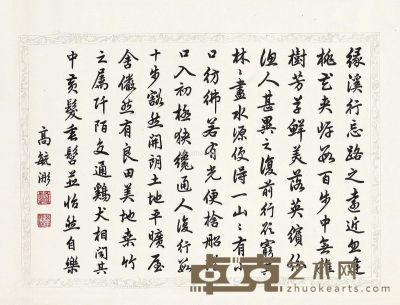 緣溪行忘路之遠近忽逢
桃花夹岸數百步中無雜
樹芳草鮮美落英繽紛
漁人甚異之復前行欲窮其
林〻盡水源便得一山〻有小
口彷彿若有光便捨船
口入初極狹纔通人復行數
十步豁然開朗土地平曠屋
舍儼然有良田美地桑竹
之屬阡陌交通鷄犬相聞其
中黃髮垂髫並怡然自樂
高毓浵
卓克艺术网
zhuokearts.com